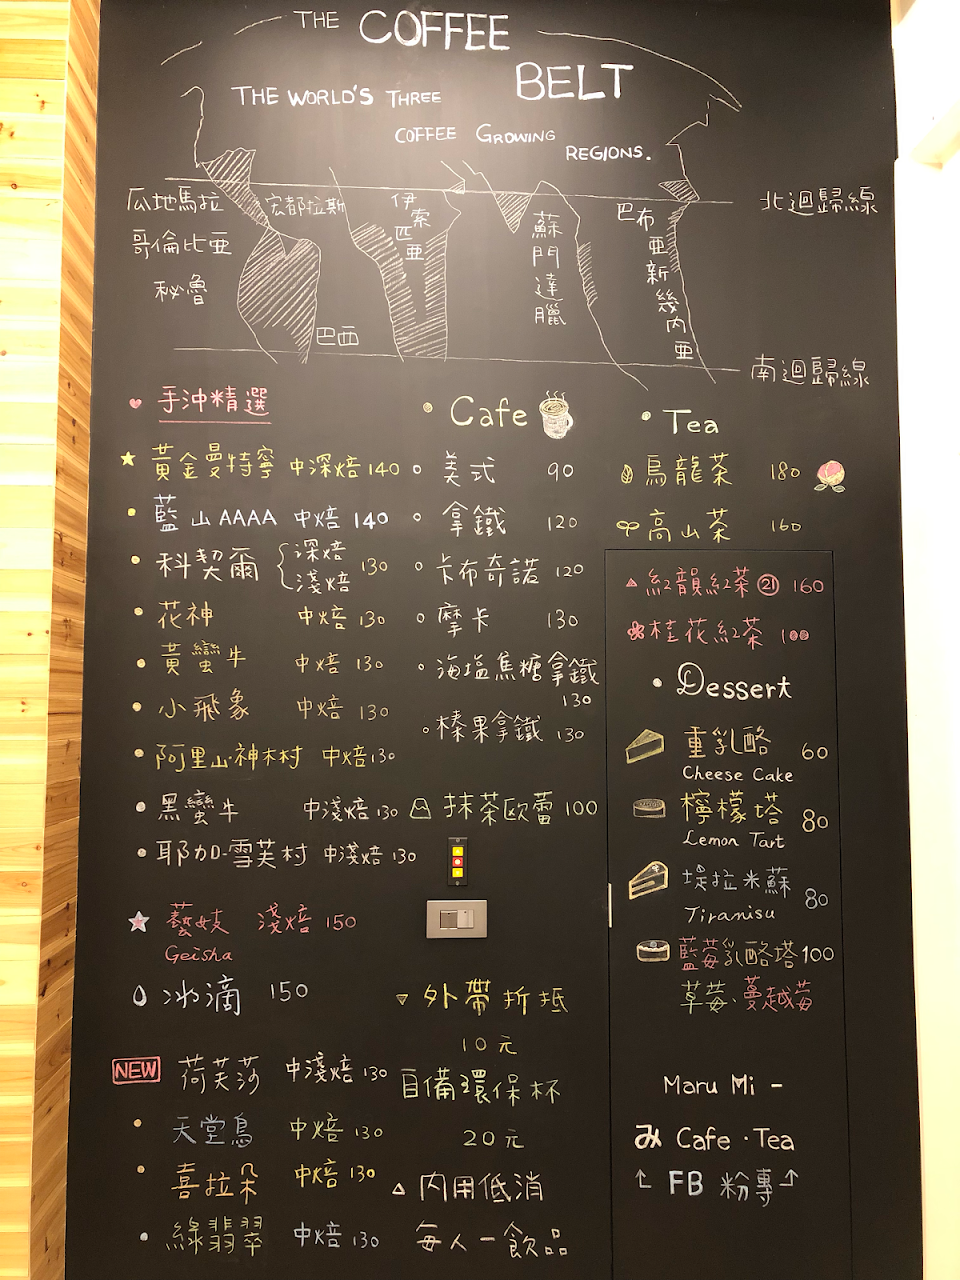 THE COFFEE
BELT
THE WORLD'S THREE
COFFEE GROWING
REGIONS.
北迴歸線
瓜地馬拉
宏都拉斯
哥倫比亞
秘魯
巴西
伊索匹亞
蘇門達臘
巴布亞新幾內亞
南迴歸線
手沖精選
黃金曼特寧 中深焙 140
藍山AAAA 中焙 140
科契爾 深焙 淺焙 130
花神 中焙 130
黃蠻牛 中焙 130
小飛象 中焙 130
阿里山·神木村 中焙 130
黑蠻牛 中淺焙 130
耶加-雪芙村 中淺焙 130
藝妓 淺焙 150
Geisha
冰滴 150
NEW 荷芙莎 中淺焙 130
天堂鳥 中焙 130
喜拉朵 中焙 130
綠翡翠 中焙 130
Cafe
美式 90
拿鐵 120
卡布奇諾 120
摩卡 130
海塩焦糖拿鐵
130
榛果拿鐵 130
抹茶欧蕾 100
外帶折抵
10元
自備環保杯
20元
內用低消
每人一飲品
Tea
烏龍茶 180
高山茶 160
紅韻紅茶㉑ 160
桂花紅茶 100
Dessert
重乳酪 60
Cheese Cake
檸檬塔 80
Lemon Tart
堤拉米蘇 80
Tiranisu
藍莓乳酪塔 100
草莓·蔓越莓
Maru Mi -
み Cafe·Tea
FB 粉專